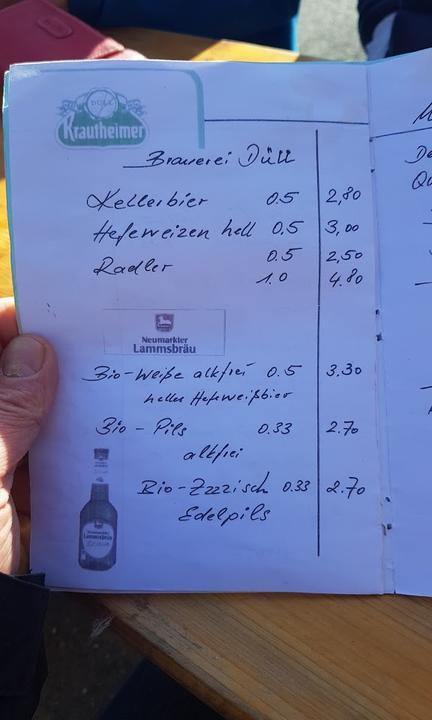 DÜLL
Krautheimer
Brauerei Düll
Kellerbier 0.5 2,80
Hefeweizen hell 0,5 3,00
Radler 0.5 2,50
1.0 4.80
Neumarkter
Lammsbräu
Bio-Weiße alkfrei 0.5 3,30
helles Hefeweißbier
Bio-Pils 0.33 2.70
alkfrei
Bio-Zzzisch 0.33 2.70
Edelpils
Lammsbräu